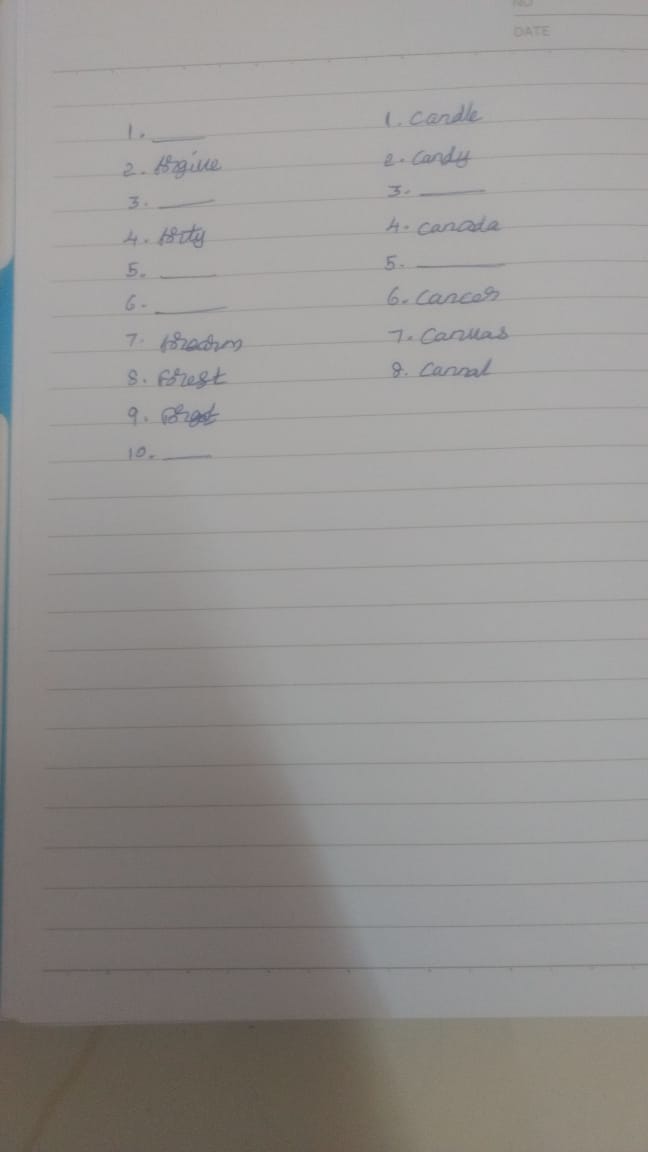 NO
DATE
1. ____
2. forgive
3. ____
4. forty
5. ____
6. ____
7.
8. Forest
9.
10. ____
1. Candle
2. Candy
3. ____
4. Canada
5. ____
6. Cancer
7. Canvas
8. Cannal